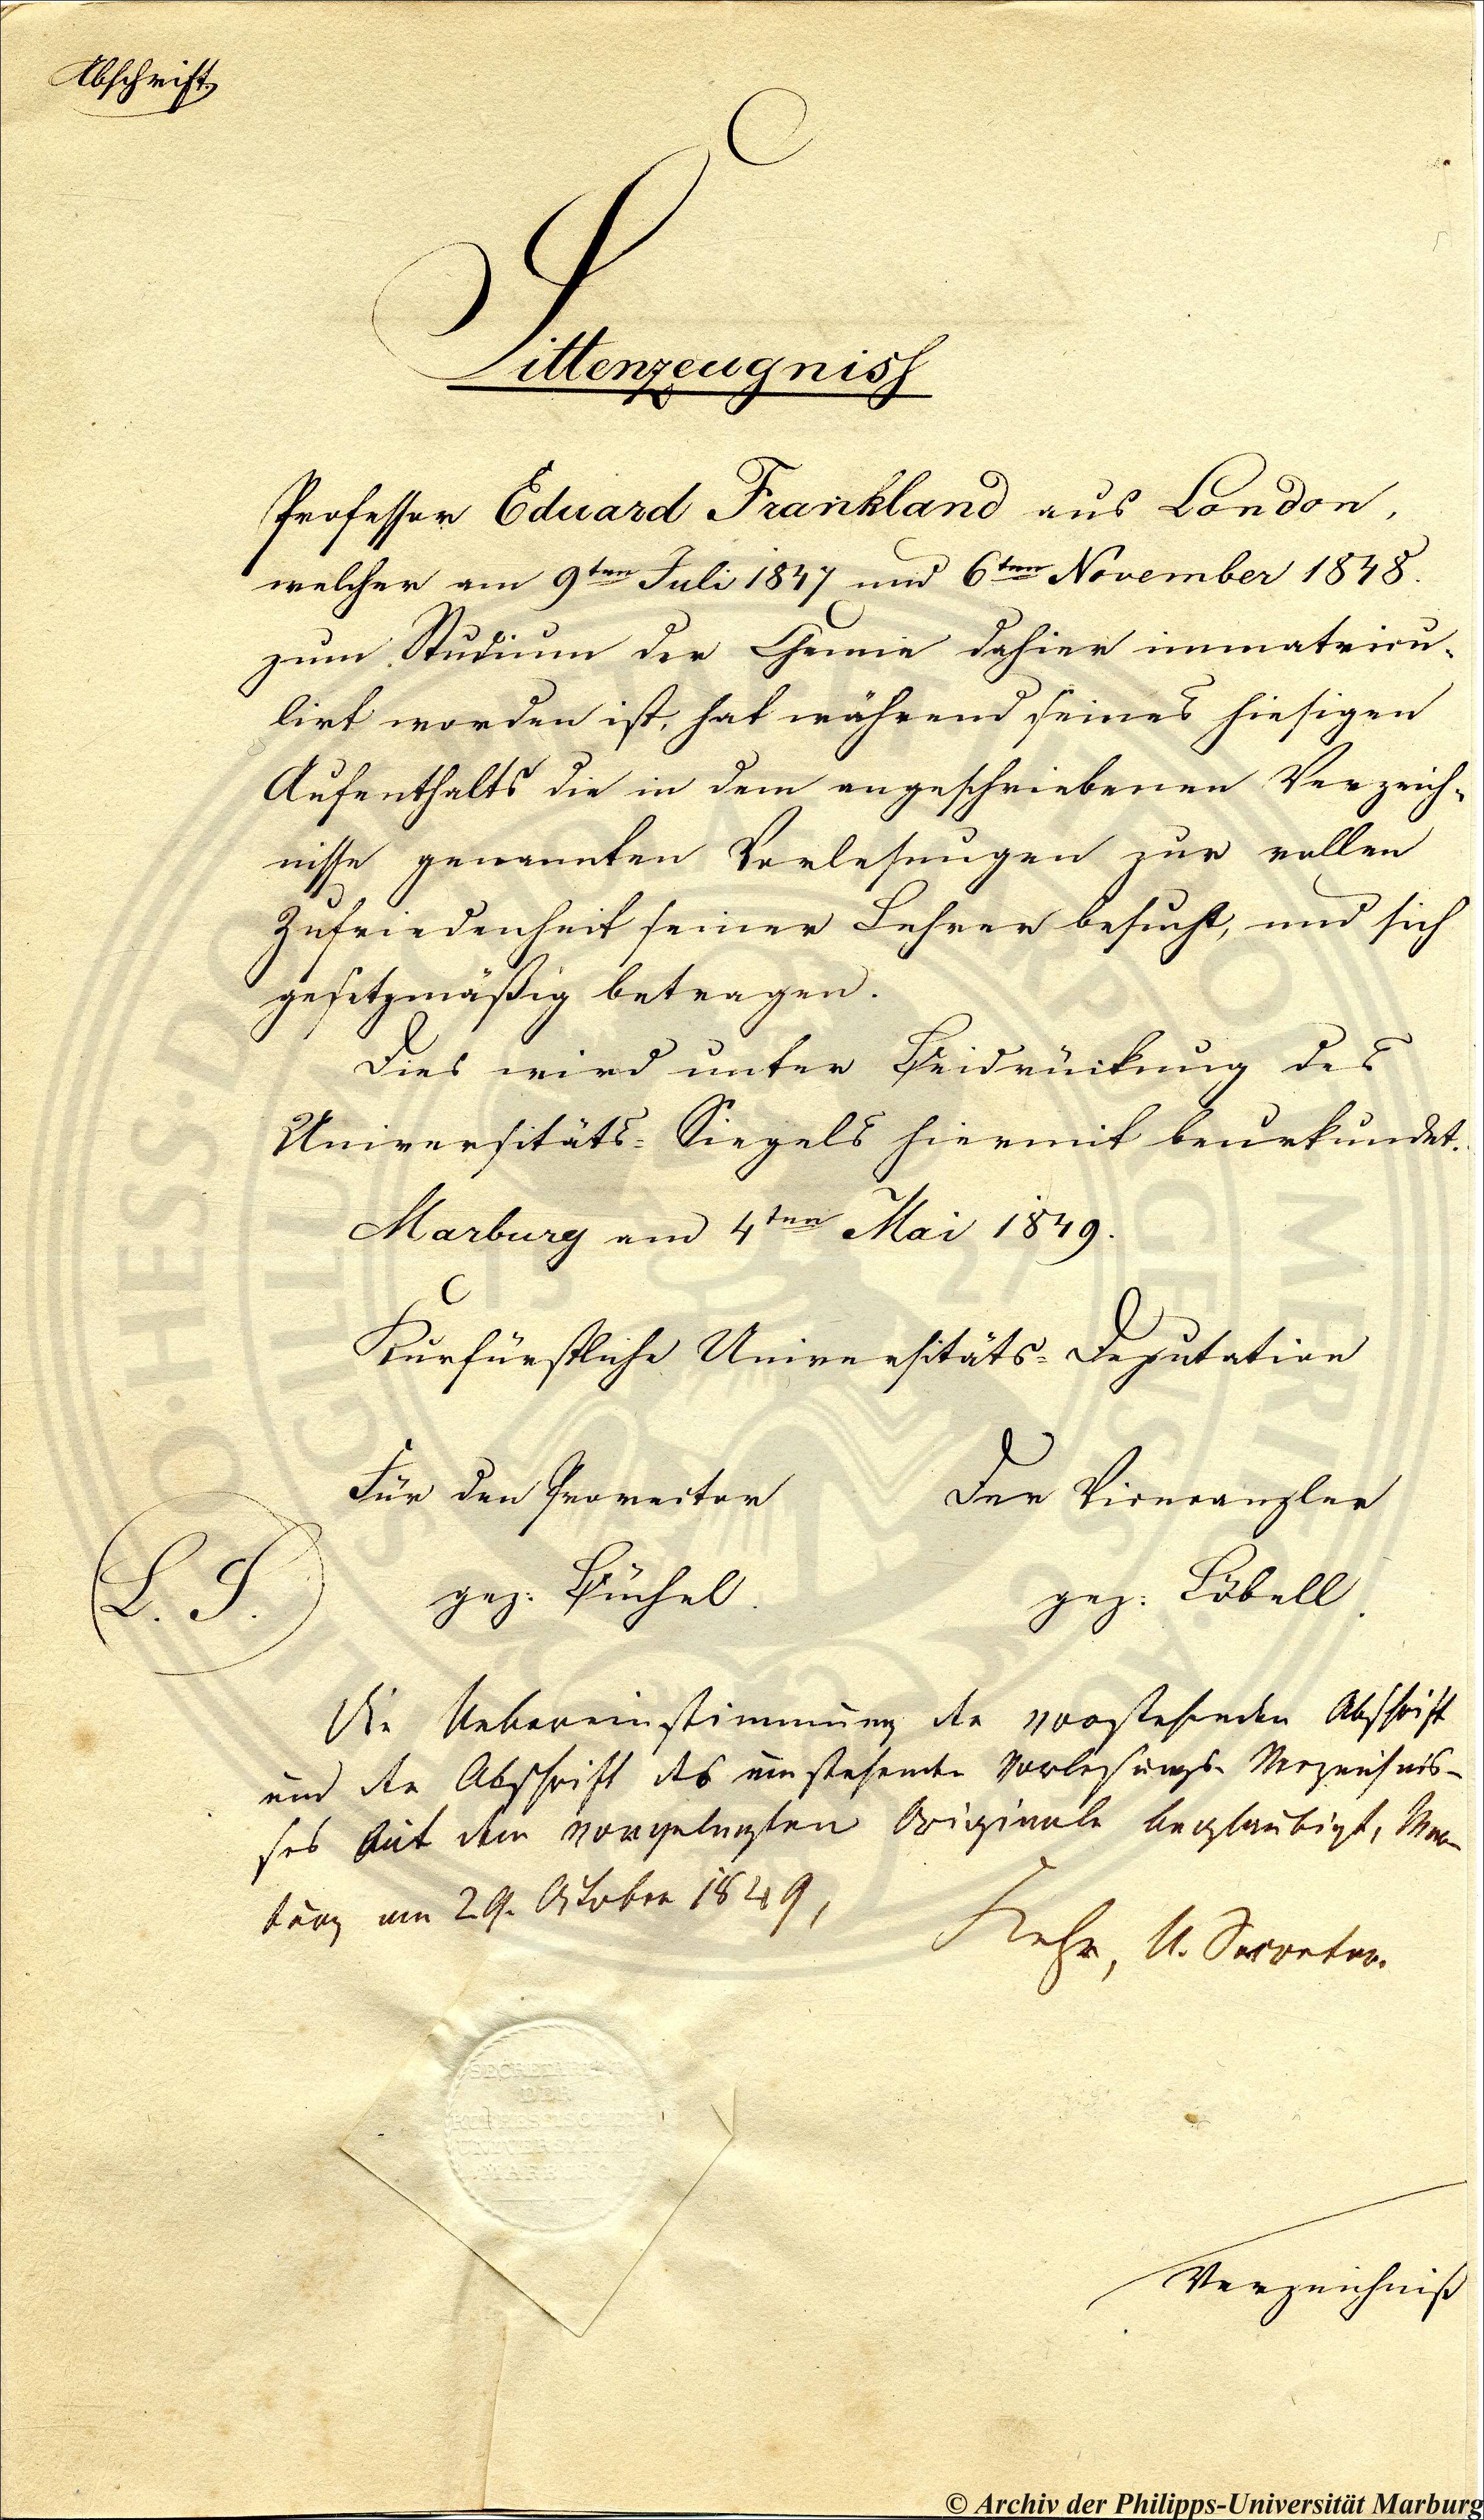 Abschrift.
Sittenzeugniss
Professor Eduard Frankland aus London,
welcher am 9ten Juli 1847 und 6ten November 1848.
zum Studium der Chemie dahier immatricu-
lirt worden ist, hat während seines hiesigen
Aufenthalts die in dem angeschriebenen Verzeich-
nisse genannten Vorlesungen zur vollen
Zufriedenheit seiner Lehrer besucht, und sich
gesetzmäßig betragen.
Dies wird unter Beidrückung des
Universitäts-Siegels hiermit beurkundet.
Marburg am 4ten Mai 1849.
Kurfürstliche Universitäts-Deputation
Für den Prorector Der Vicecanzler
L. S. gez: Büchel. gez: Löbell.
Die Uebereinstimmung der vorstehenden Abschrift
und der Abschrift des umstehenden Vorlesungs-Verzeichnis-
ses mit dem vorgelegten Originale beglaubigt, Mar-
burg am 29. October 1849,
Kehr, U. Secretar.
SECRETARIAT
DER
UNIVERSITÄT
MARBURG
Verzeichniß
© Archiv der Philipps-Universität Marburg